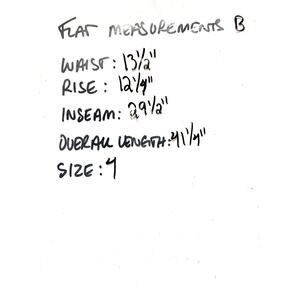 FLAT MEASUREMENTS B
WAIST: 13½"
RISE: 12¼"
INSEAM: 29½"
OVERALL LENGTH: 41¼"
SIZE: 4